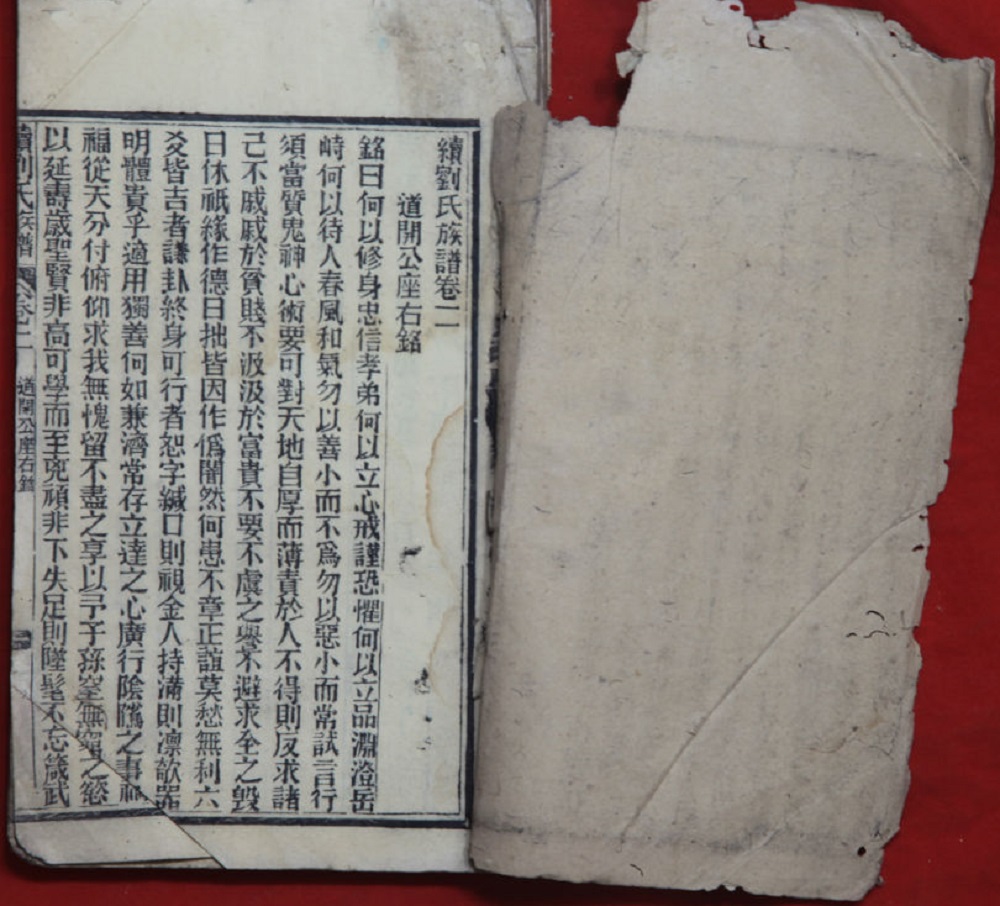 續劉氏族譜卷二
道開公座右銘
銘曰何以修身忠信孝弟何以立心戒謹恐懼何以立品淵澄岳
峙何以待人春風和氣勿以善小而不爲勿以惡小而常試言行
須當質鬼神心術要可對天地自厚而薄責於人不得則反求諸
己不戚戚於貧賤不汲汲於富貴不要不虞之譽不避求全之毀
日休祇緣作德日拙皆因作僞闇然何患不章正誼莫愁無利六
爻皆吉者謙卦終身可行者恕字緘口則視金人持滿則凛欹器
明體貴乎適用獨善何如兼濟常存立達之心廣行陰隲之事
福從天分付俯仰求我無愧留不盡之享以予子孫窒無窮之慾
以延壽歲聖賢非高可學而至兇頑非下失足則墜髦不忘箴武
續劉氏族譜
卷二
道開公座右銘